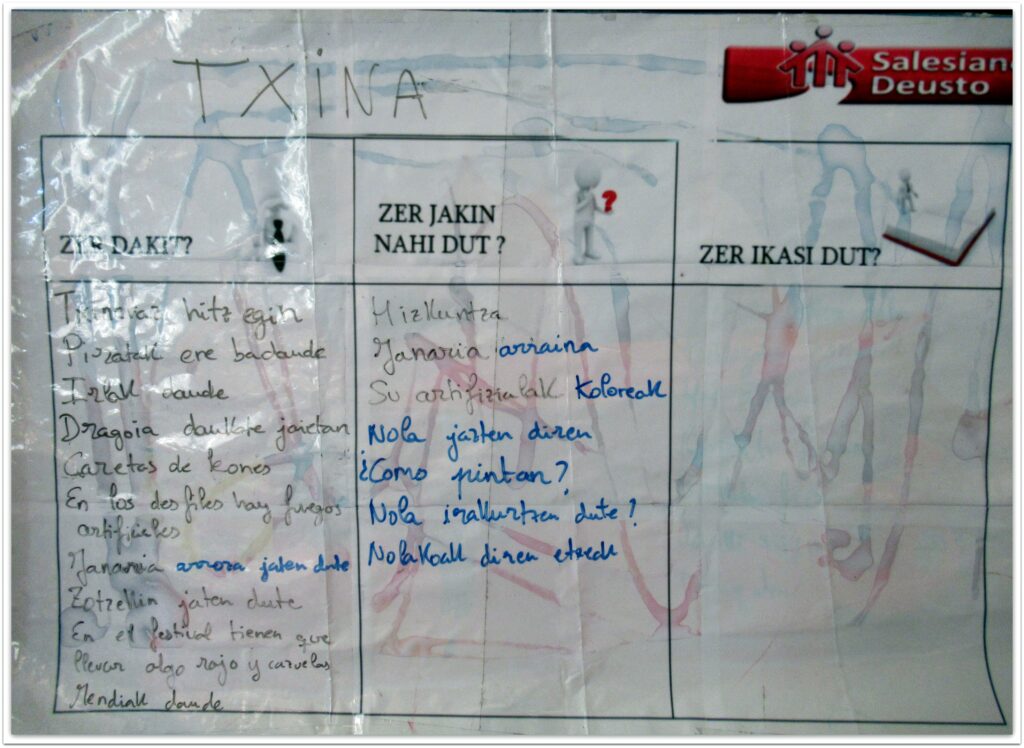 TXINA
Salesian
Deusto
ZER DAKIT?
ZER JAKIN
NAHI DUT ?
ZER IKASI DUT?
hitz egin
Piratak ere badaude
Irlak daude
Dragoia daukate jaietan
Caretas de
En los desfiles hay fuegos
artificiales
Janaria arroza jaten dute
Zotzekin jaten dute
En el festival tienen que
llevar algo rojo y
Mendiak daude
Hizkuntza
Janaria arraina
Su artifizialak Koloreak
Nola jazten diren
¿Como pintan?
Nola irakurtzen dute?
Nolakoak diren etxeak